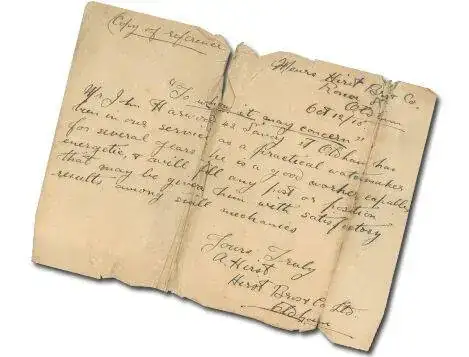 Copy of reference
Messrs Hirst Bros & Co.
Oldham
Oct 18/10
"To whom it may concern"
Mr John Harwood of Oldham has
been in our service as a practical watchmaker
for several years he is a good worker capable
energetic, & will fill any post or position
that may be given him with satisfactory
results among small mechanics
Yours Truly
A Hirst
Hirst Bros & Co Ltd.
Oldham